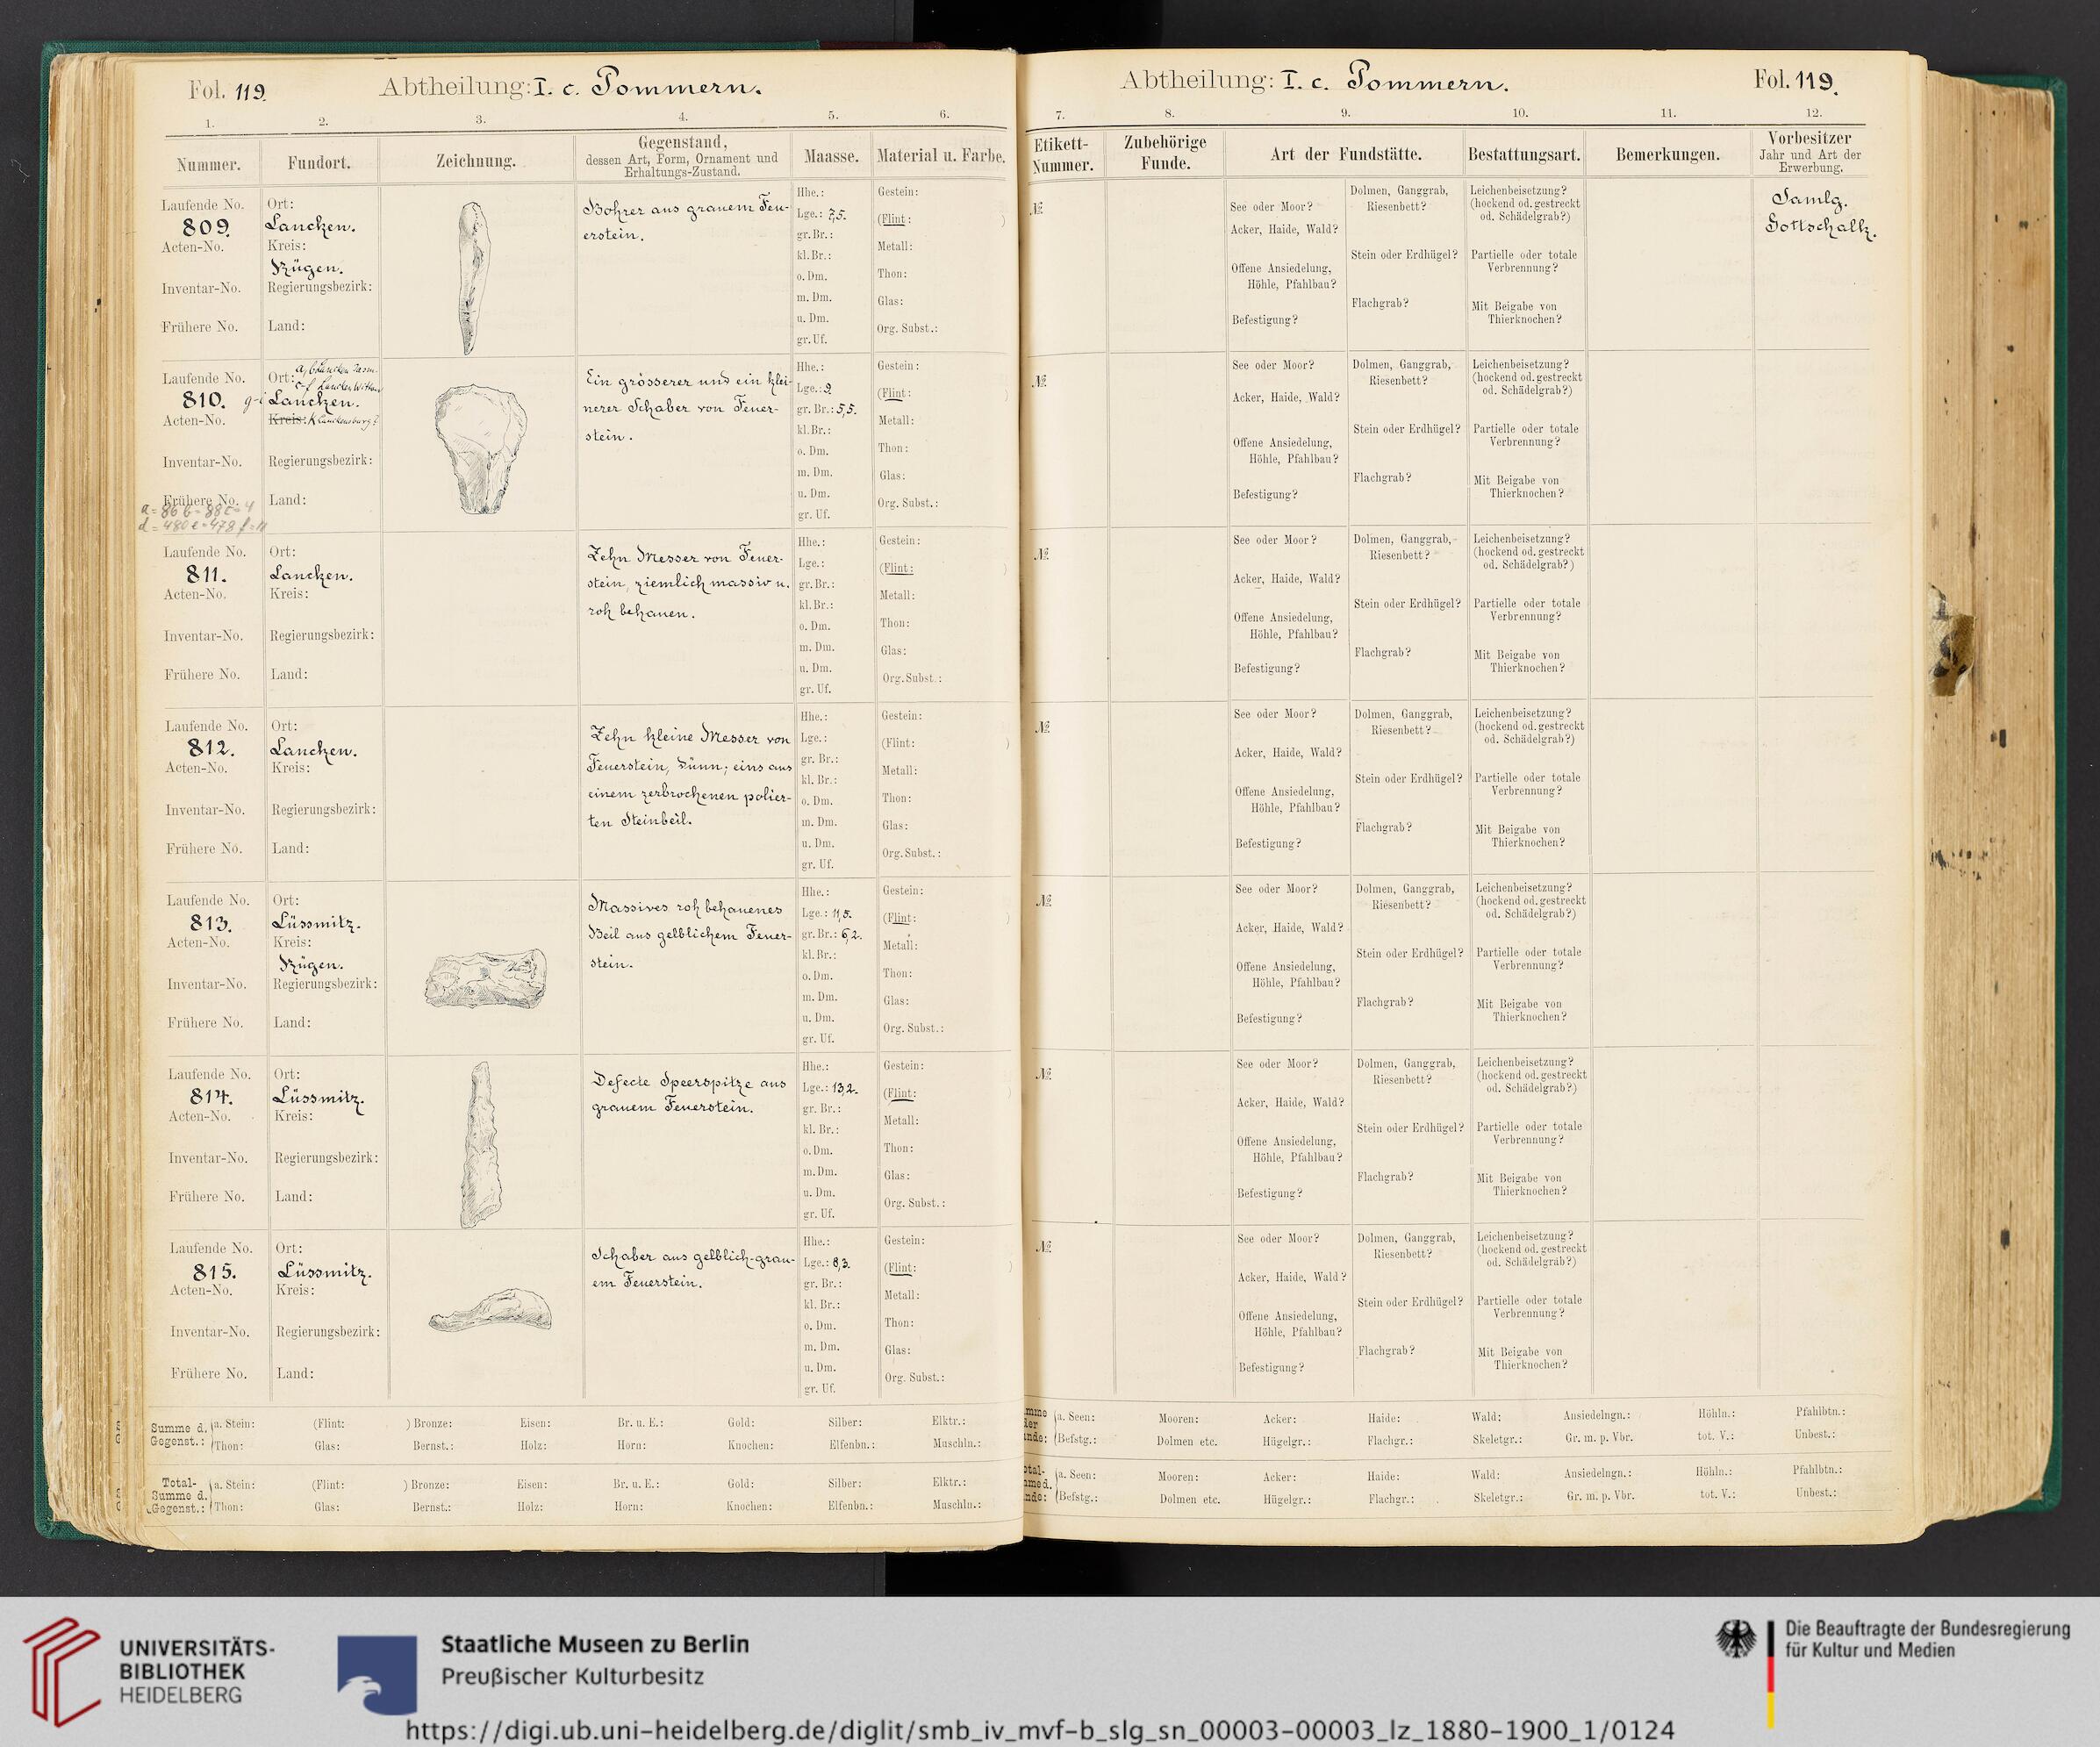 Fol. 119.
Abtheilung: I. c. Pommern.
1. 2. 3. 4. 5. 6.
Nummer.
Fundort.
Zeichnung.
Gegenstand,
dessen Art, Form, Ornament und
Erhaltungs-Zustand.
Maasse.
Material u. Farbe.
Laufende No.
809.
Acten-No.
Inventar-No.
Frühere No.
Ort:
Lancken.
Kreis:
Rügen.
Regierungsbezirk:
Land:
Bohrer aus grauem Feu-
erstein.
Hhe.:
Lge.: 7,5.
gr. Br.:
kl. Br.:
o. Dm.
m. Dm.
u. Dm.
gr. Uf.
Gestein:
(Flint: )
Metall:
Thon:
Glas:
Org. Subst.:
Laufende No.
810.
Acten-No.
Inventar-No.
Frühere No.
a = 86 b = 88 c = 4
d = 480 e = 478 f = 11
Ort:
Lancken.
Kreis:
Regierungsbezirk:
Land:
Ein grösserer und ein klei-
nerer Schaber von Feuer-
stein.
Hhe.:
Lge.: 9.
gr. Br.: 5,5.
kl. Br.:
o. Dm.
m. Dm.
u. Dm.
gr. Uf.
Gestein:
(Flint: )
Metall:
Thon:
Glas:
Org. Subst.:
Laufende No.
811.
Acten-No.
Inventar-No.
Frühere No.
Ort:
Lancken.
Kreis:
Regierungsbezirk:
Land:
Zehn Messer von Feuer-
stein, ziemlich massiv u.
roh behauen.
Hhe.:
Lge.:
gr. Br.:
kl. Br.:
o. Dm.
m. Dm.
u. Dm.
gr. Uf.
Gestein:
(Flint: )
Metall:
Thon:
Glas:
Org. Subst.:
Laufende No.
812.
Acten-No.
Inventar-No.
Frühere No.
Ort:
Lancken.
Kreis:
Regierungsbezirk:
Land:
Zehn kleine Messer von
Feuerstein, dünn; eins aus
einem zerbrochenen polier-
ten Steinbeil.
Hhe.:
Lge.:
gr. Br.:
kl. Br.:
o. Dm.
m. Dm.
u. Dm.
gr. Uf.
Gestein:
(Flint: )
Metall:
Thon:
Glas:
Org. Subst.:
Laufende No.
813.
Acten-No.
Inventar-No.
Frühere No.
Ort:
Lüssmitz.
Kreis:
Rügen.
Regierungsbezirk:
Land:
Massives roh behauenes
Beil aus gelblichem Feuer-
stein.
Hhe.:
Lge.: 11,5.
gr. Br.: 6,2.
kl. Br.:
o. Dm.
m. Dm.
u. Dm.
gr. Uf.
Gestein:
(Flint: )
Metall:
Thon:
Glas:
Org. Subst.:
Laufende No.
814.
Acten-No.
Inventar-No.
Frühere No.
Ort:
Lüssmitz.
Kreis:
Regierungsbezirk:
Land:
Defecte Speerspitze aus
grauem Feuerstein.
Hhe.:
Lge.: 13,2.
gr. Br.:
kl. Br.:
o. Dm.
m. Dm.
u. Dm.
gr. Uf.
Gestein:
(Flint: )
Metall:
Thon:
Glas:
Org. Subst.:
Laufende No.
815.
Acten-No.
Inventar-No.
Frühere No.
Ort:
Lüssmitz.
Kreis:
Regierungsbezirk:
Land:
Schaber aus gelblich-grau-
em Feuerstein.
Hhe.:
Lge.: 8,3.
gr. Br.:
kl. Br.:
o. Dm.
m. Dm.
u. Dm.
gr. Uf.
Gestein:
(Flint: )
Metall:
Thon:
Glas:
Org. Subst.:
Summe d. Gegenst.:
a. Stein: (Flint: ) Bronze: Eisen: Br. u. E.: Gold: Silber: Elktr.:
Thon: Glas: Bernst.: Holz: Horn: Knochen: Elfenbn.: Muschln.:
Total-Summe d. Gegenst.:
a. Stein: (Flint: ) Bronze: Eisen: Br. u. E.: Gold: Silber: Elktr.:
Thon: Glas: Bernst.: Holz: Horn: Knochen: Elfenbn.: Muschln.:
Abtheilung: I. c. Pommern.
Fol. 119.
7. 8. 9. 10. 11. 12.
Etikett-
Nummer.
Zubehörige
Funde.
Art der Fundstätte.
Bestattungsart.
Bemerkungen.
Vorbesitzer
Jahr und Art der
Erwerbung.
№
See oder Moor?
Acker, Haide, Wald?
Offene Ansiedelung,
Höhle, Pfahlbau?
Befestigung?
Dolmen, Ganggrab,
Riesenbett?
Stein oder Erdhügel?
Flachgrab?
Leichenbeisetzung?
(hockend od. gestreckt
od. Schädelgrab?)
Partielle oder totale
Verbrennung?
Mit Beigabe von
Thierknochen?
Samlg.
Gottschalk.
№
See oder Moor?
Acker, Haide, Wald?
Offene Ansiedelung,
Höhle, Pfahlbau?
Befestigung?
Dolmen, Ganggrab,
Riesenbett?
Stein oder Erdhügel?
Flachgrab?
Leichenbeisetzung?
(hockend od. gestreckt
od. Schädelgrab?)
Partielle oder totale
Verbrennung?
Mit Beigabe von
Thierknochen?
№
See oder Moor?
Acker, Haide, Wald?
Offene Ansiedelung,
Höhle, Pfahlbau?
Befestigung?
Dolmen, Ganggrab,
Riesenbett?
Stein oder Erdhügel?
Flachgrab?
Leichenbeisetzung?
(hockend od. gestreckt
od. Schädelgrab?)
Partielle oder totale
Verbrennung?
Mit Beigabe von
Thierknochen?
№
See oder Moor?
Acker, Haide, Wald?
Offene Ansiedelung,
Höhle, Pfahlbau?
Befestigung?
Dolmen, Ganggrab,
Riesenbett?
Stein oder Erdhügel?
Flachgrab?
Leichenbeisetzung?
(hockend od. gestreckt
od. Schädelgrab?)
Partielle oder totale
Verbrennung?
Mit Beigabe von
Thierknochen?
№
See oder Moor?
Acker, Haide, Wald?
Offene Ansiedelung,
Höhle, Pfahlbau?
Befestigung?
Dolmen, Ganggrab,
Riesenbett?
Stein oder Erdhügel?
Flachgrab?
Leichenbeisetzung?
(hockend od. gestreckt
od. Schädelgrab?)
Partielle oder totale
Verbrennung?
Mit Beigabe von
Thierknochen?
№
See oder Moor?
Acker, Haide, Wald?
Offene Ansiedelung,
Höhle, Pfahlbau?
Befestigung?
Dolmen, Ganggrab,
Riesenbett?
Stein oder Erdhügel?
Flachgrab?
Leichenbeisetzung?
(hockend od. gestreckt
od. Schädelgrab?)
Partielle oder totale
Verbrennung?
Mit Beigabe von
Thierknochen?
№
See oder Moor?
Acker, Haide, Wald?
Offene Ansiedelung,
Höhle, Pfahlbau?
Befestigung?
Dolmen, Ganggrab,
Riesenbett?
Stein oder Erdhügel?
Flachgrab?
Leichenbeisetzung?
(hockend od. gestreckt
od. Schädelgrab?)
Partielle oder totale
Verbrennung?
Mit Beigabe von
Thierknochen?
a. Seen: Mooren: Acker: Haide: Wald: Ansiedelngn.: Höhln.: Pfahlbtn.:
Befstg.: Dolmen etc. Hügelgr.: Flachgr.: Skeletgr.: Gr. m. p. Vbr. tot. V.: Unbest.:
a. Seen: Mooren: Acker: Haide: Wald: Ansiedelngn.: Höhln.: Pfahlbtn.:
Befstg.: Dolmen etc. Hügelgr.: Flachgr.: Skeletgr.: Gr. m. p. Vbr. tot. V.: Unbest.:
UNIVERSITÄTS-
BIBLIOTHEK
HEIDELBERG
Staatliche Museen zu Berlin
Preußischer Kulturbesitz
Die Beauftragte der Bundesregierung
für Kultur und Medien
https://digi.ub.uni-heidelberg.de/diglit/smb_iv_mvf-b_slg_sn_00003-00003_lz_1880-1900_1/0124